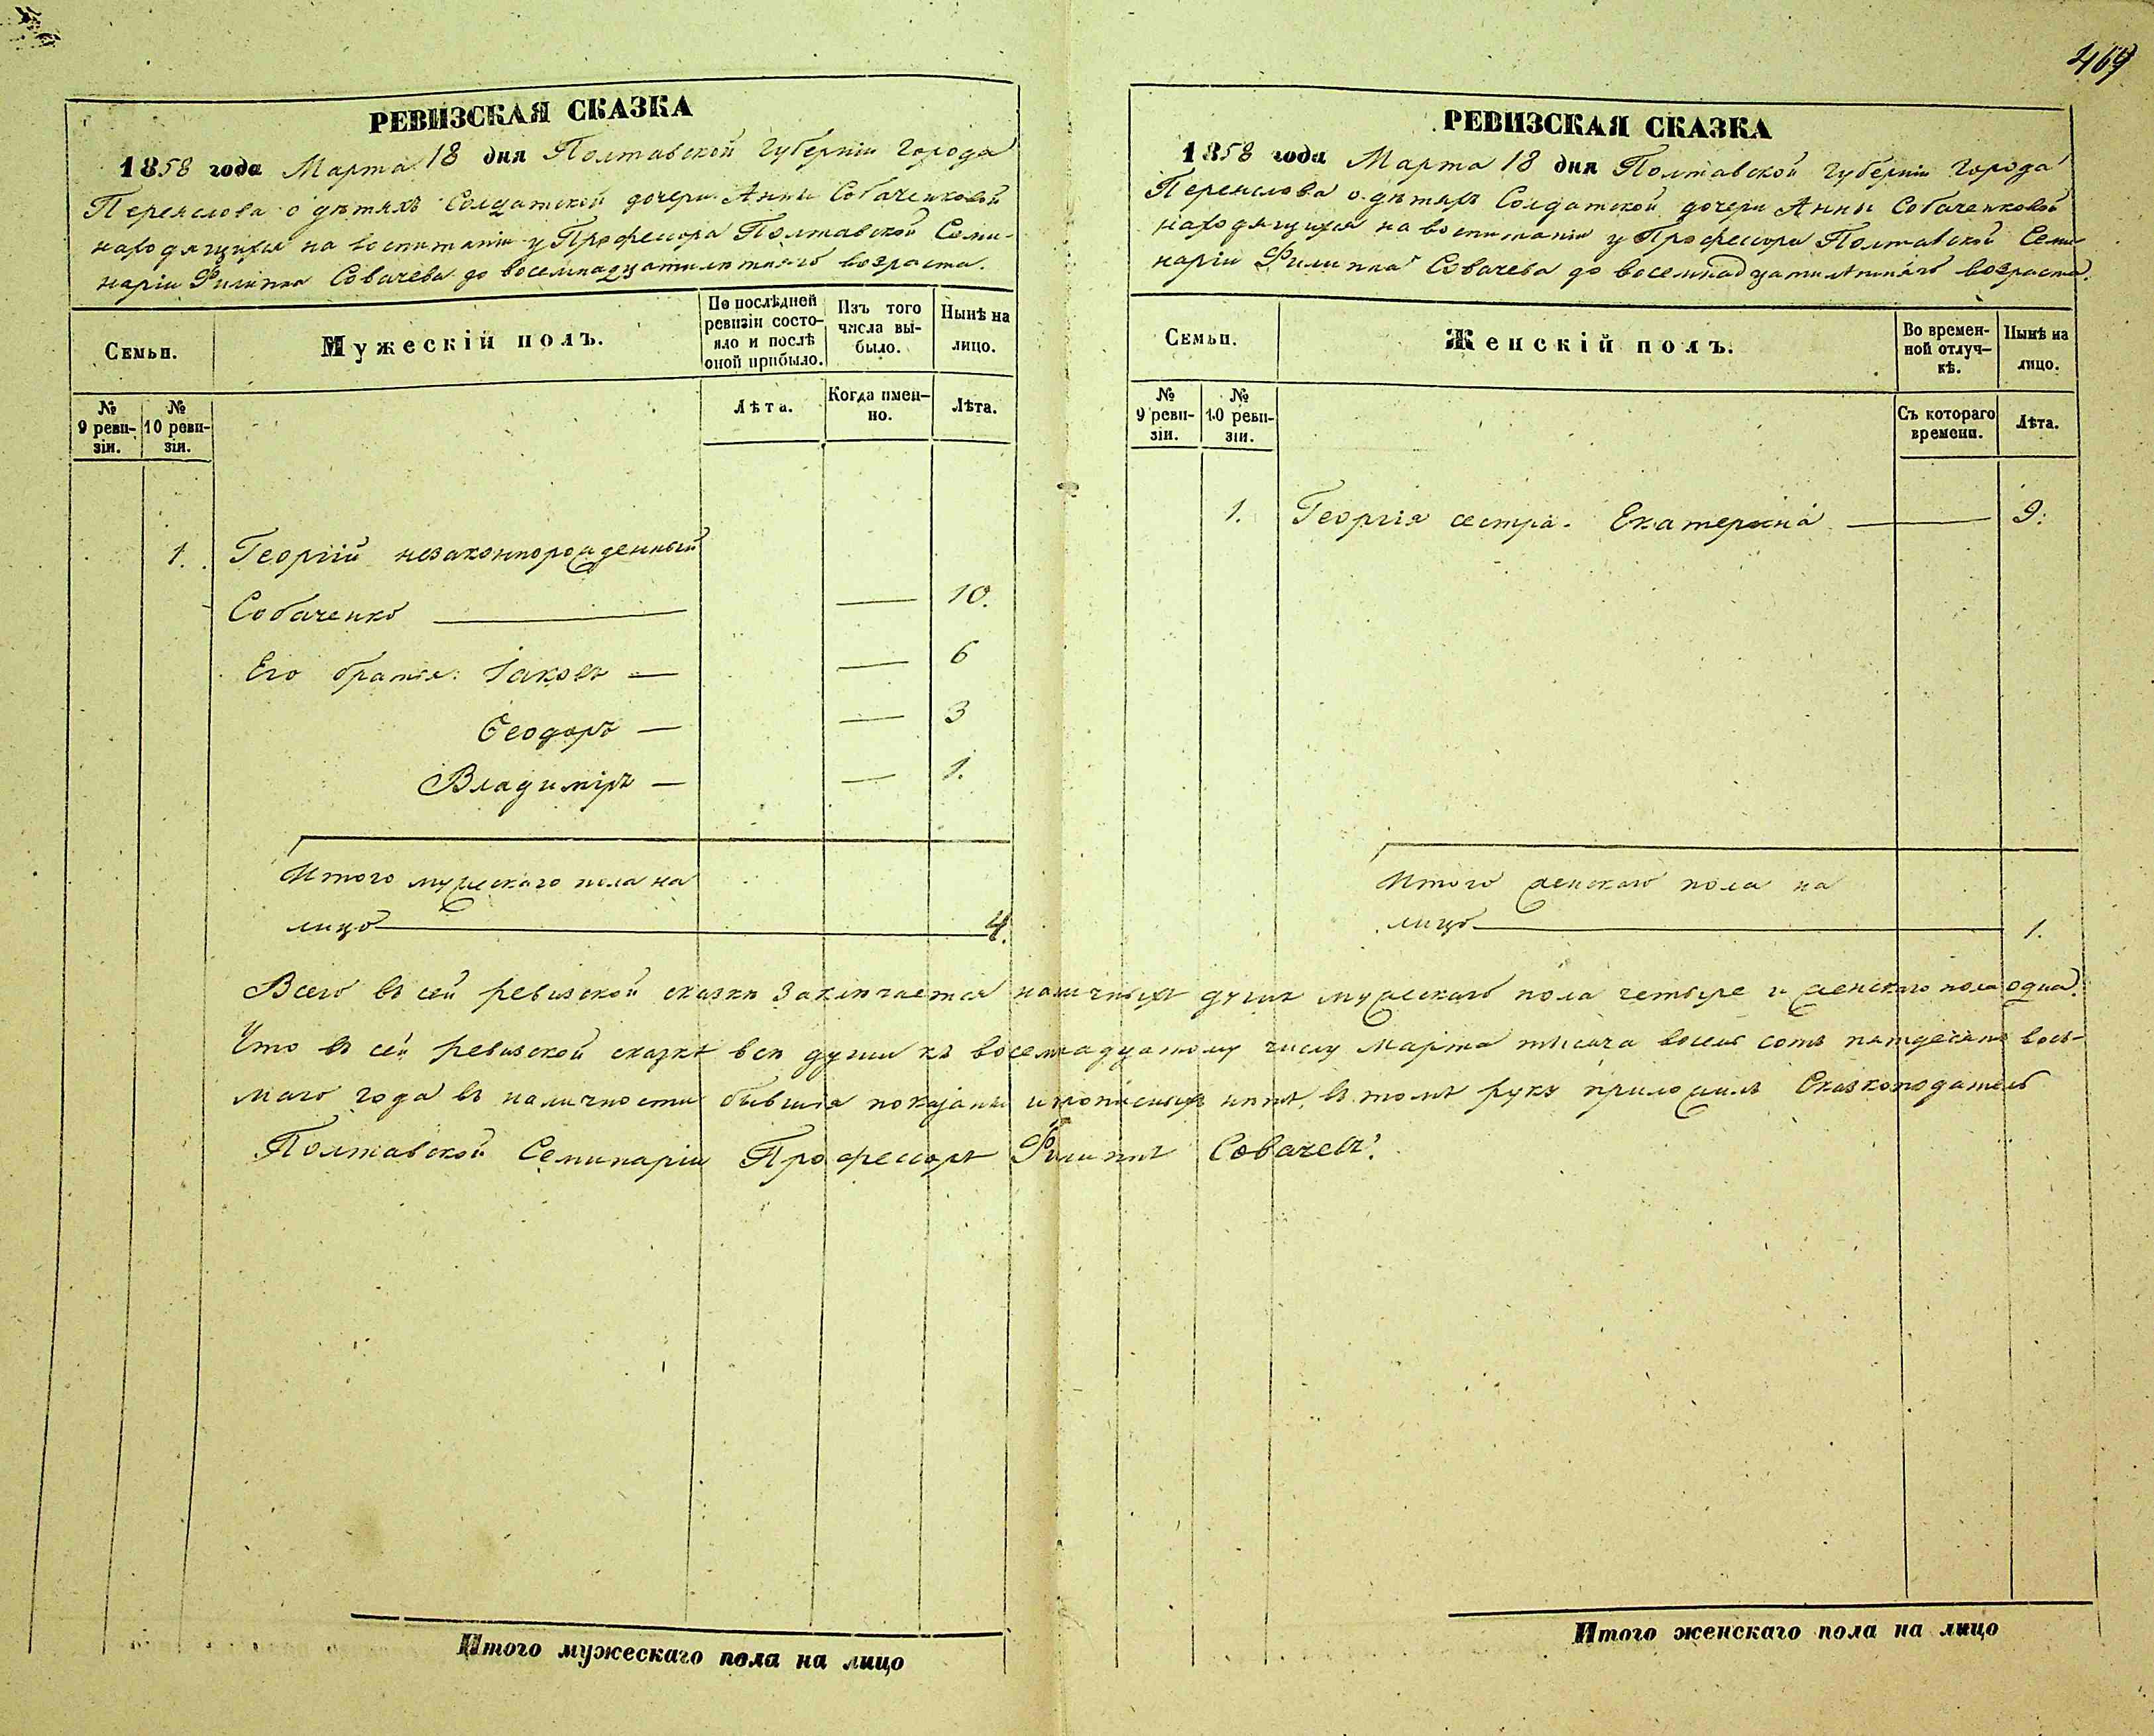 469
РЕВИЗСКАЯ СКАЗКА
1858 года Марта 18 дня Полтавской Губерніи Города
Переяслова о дѣтяхъ Солдатской дочери Анны Собаченковой
находящихся на воспитаніи у Профессора Полтавской Семи-
наріи Филиппа Совачева до восемнадцатилѣтняго возраста.
Семьи.
Мужескій полъ.
По послѣдней ревизіи состо-
яло и послѣ оной прибыло.
Изъ того числа вы-
было.
Нынѣ на лицо.
№ 9 реви-
зіи.
№ 10 реви-
зіи.
Лѣта.
Когда имен-
но.
Лѣта.
1. Георгій незаконнорожденный
Собаченко — — 10.
Его братья: Іаковъ — — 6
Ѳеодоръ — — 3
Владиміръ — — 1.
Итого мужескаго пола на
лицо — 4.
РЕВИЗСКАЯ СКАЗКА
1858 года Марта 18 дня Полтавской Губерніи Города
Переяслова о дѣтяхъ Солдатской дочери Анны Собаченковой
находящихся на воспитаніи у Профессора Полтавской Семи-
наріи Филиппа Совачева до восемнадцатилѣтняго возраста.
Семьи.
Женскій полъ.
Во времен-
ной отлуч-
кѣ.
Нынѣ на лицо.
№ 9 реви-
зіи.
№ 10 реви-
зіи.
Съ котораго времени.
Лѣта.
1. Георгія сестра. Екатерина — 9.
Итого женскаго пола на
лицо — 1.
Всего въ сей ревизской сказкѣ заключается наличныхъ душъ мужескаго пола четыре и женскаго пола одна.
Что въ сей ревизской сказкѣ всѣ души къ восемнадцатому числу Марта тысяча восемь сотъ пятдесятъ вось-
маго года въ наличности бывшія показаны и прописныхъ нѣтъ, въ томъ руку приложилъ Сказкоподатель
Полтавской Семинаріи Профессоръ Филиппъ Совачевъ.
Итого мужескаго пола на лицо
Итого женскаго пола на лицо